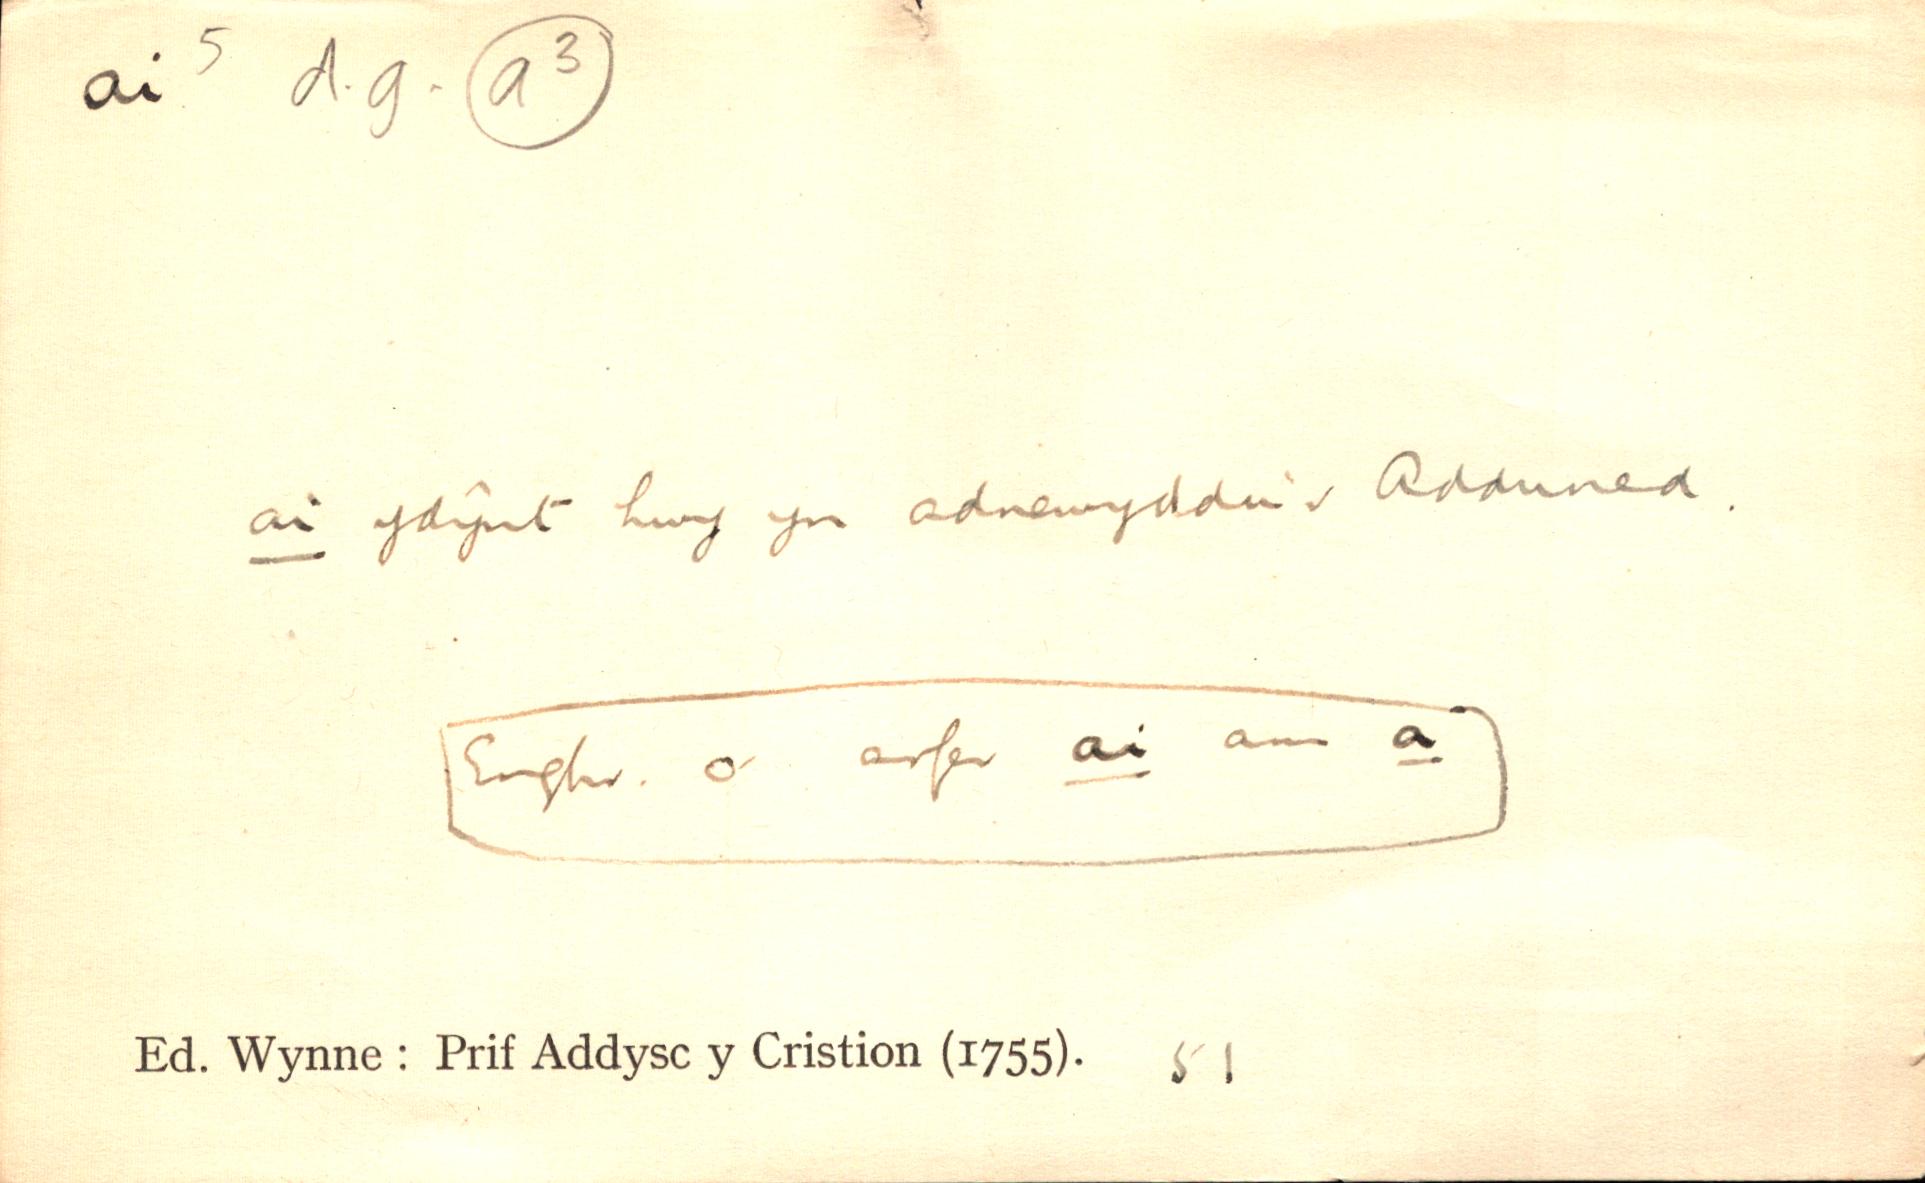 ai⁵ d.g. a³
ai ydŷnt hwy yn adnewyddu'r Adduned.
Enghr. o arfer ai am a
Ed. Wynne: Prif Addysc y Cristion (1755). 51